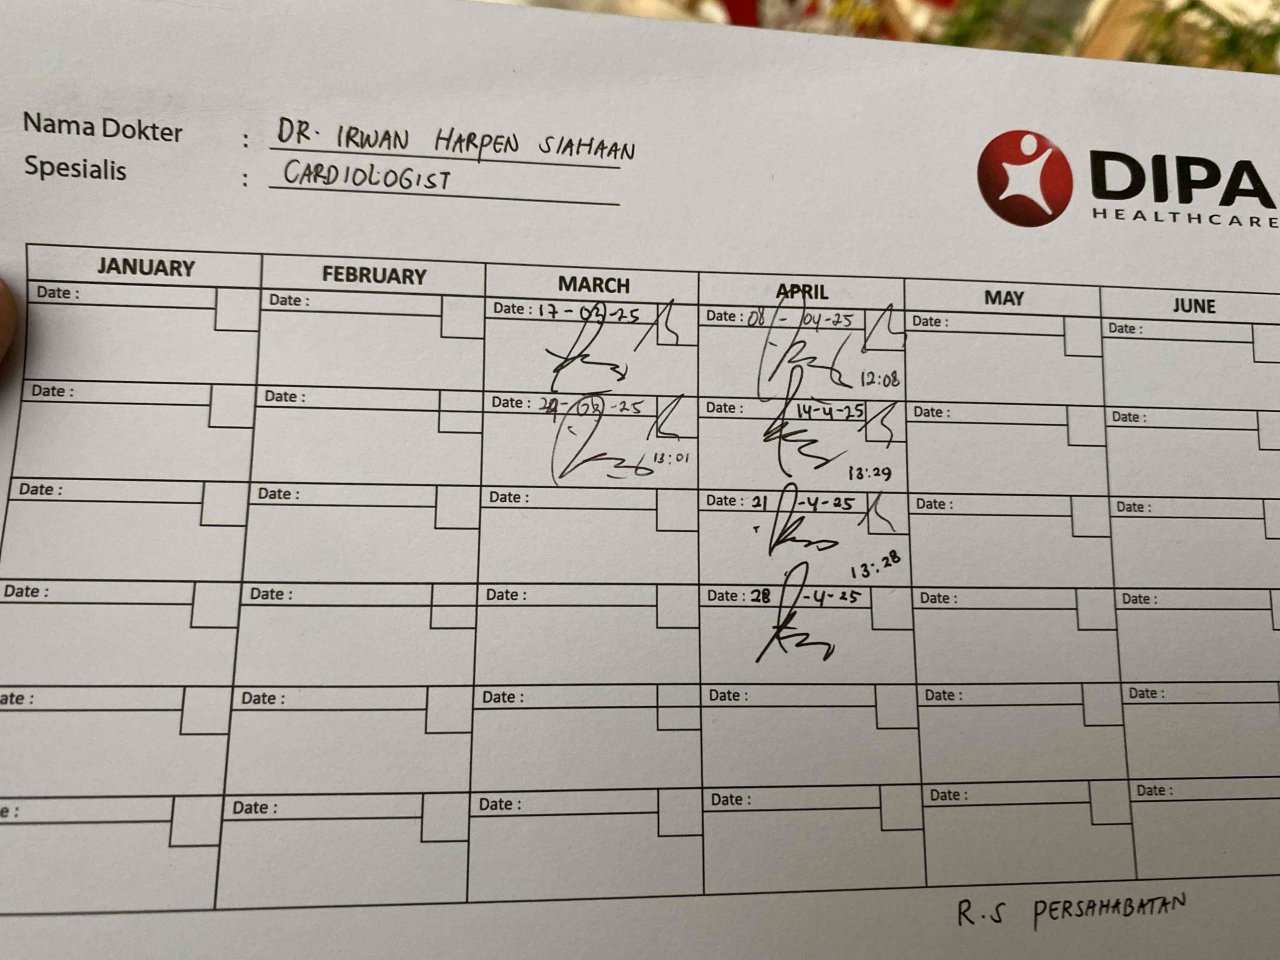 Nama Dokter : DR. IRWAN HARPEN SIAHAAN
Spesialis : CARDIOLOGIST
DIPA
HEALTHCARE
JANUARY FEBRUARY MARCH APRIL MAY JUNE
Date : Date : Date : 17-03-25 Date : 08-04-25 Date : Date :
12:08
Date : Date : Date : -03-25 Date : 14-4-25 Date : Date :
13:01 13:29
Date : Date : Date : Date : 21-4-25 Date : Date :
13:28
Date : Date : Date : Date : 28-4-25 Date : Date :
ate : Date : Date : Date : Date : Date :
e : Date : Date : Date : Date : Date :
R.S PERSAHABATAN